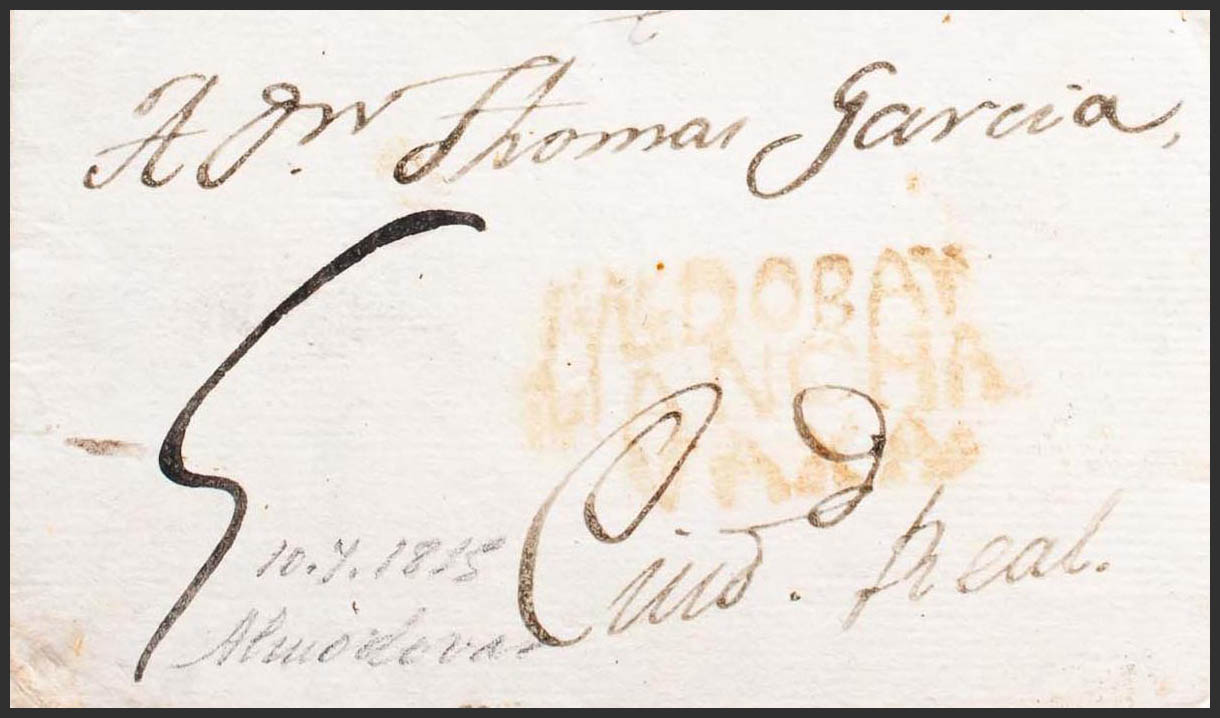 A Dn. Thomas Garcia,
MANCHA
5
Ciud. Real.
10.7.1815
Almodovar